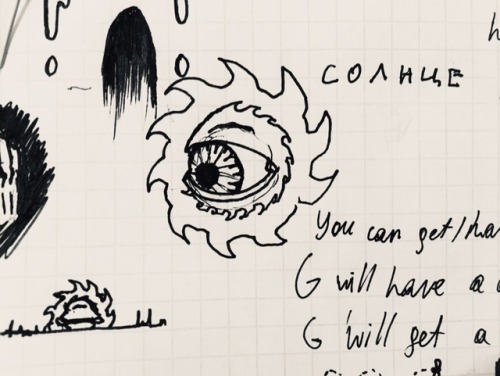 СОЛНЦЕ
You can get/ha
G will have a
G will get a